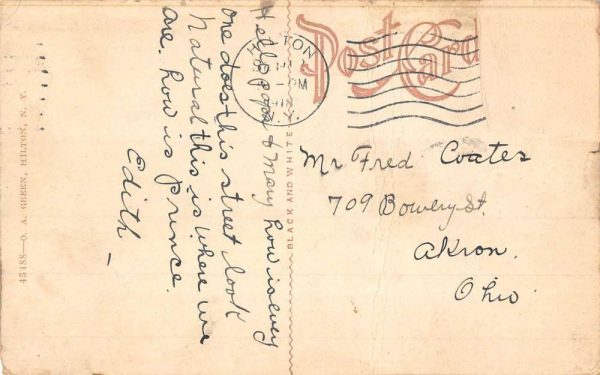 Post Card
TON
PM
Mr Fred Coates
709 Bowery St.
Akron.
Ohio
Hello papa & Mary how is every
one does this street look
Natural this is where we
are. how is Prince.
Edith —
BLACK AND WHITE
45488—O. A. GREEN, HILTON, N. Y.